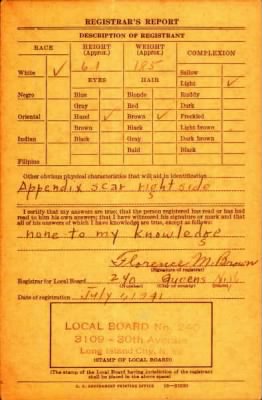 REGISTRAR'S REPORT
DESCRIPTION OF REGISTRANT
RACE HEIGHT (Approx.) WEIGHT (Approx.) COMPLEXION
White ✓ 6.1 185 Sallow
EYES HAIR Light ✓
Negro Blue Blonde Ruddy
Gray Red Dark
Oriental Hazel ✓ Brown ✓ Freckled
Brown Black Light brown
Indian Black Gray Dark brown
Bald Black
Filipino
Other obvious physical characteristics that will aid in identification
Appendix scar right side
I certify that my answers are true; that the person registered has read or has had
read to him his own answers; that I have witnessed his signature or mark and that
all of his answers of which I have knowledge are true, except as follows:
none to my knowledge
Florence M. Brown
(Signature of registrar)
Registrar for Local Board 240 Queens N.Y.
(Number) (City or county) (State)
Date of registration July 1941
LOCAL BOARD No. 240
3109 - 30th Avenue
Long Island City, N.Y.
(STAMP OF LOCAL BOARD)
(The stamp of the Local Board having jurisdiction of the registrant
shall be placed in the above space.)
U. S. GOVERNMENT PRINTING OFFICE